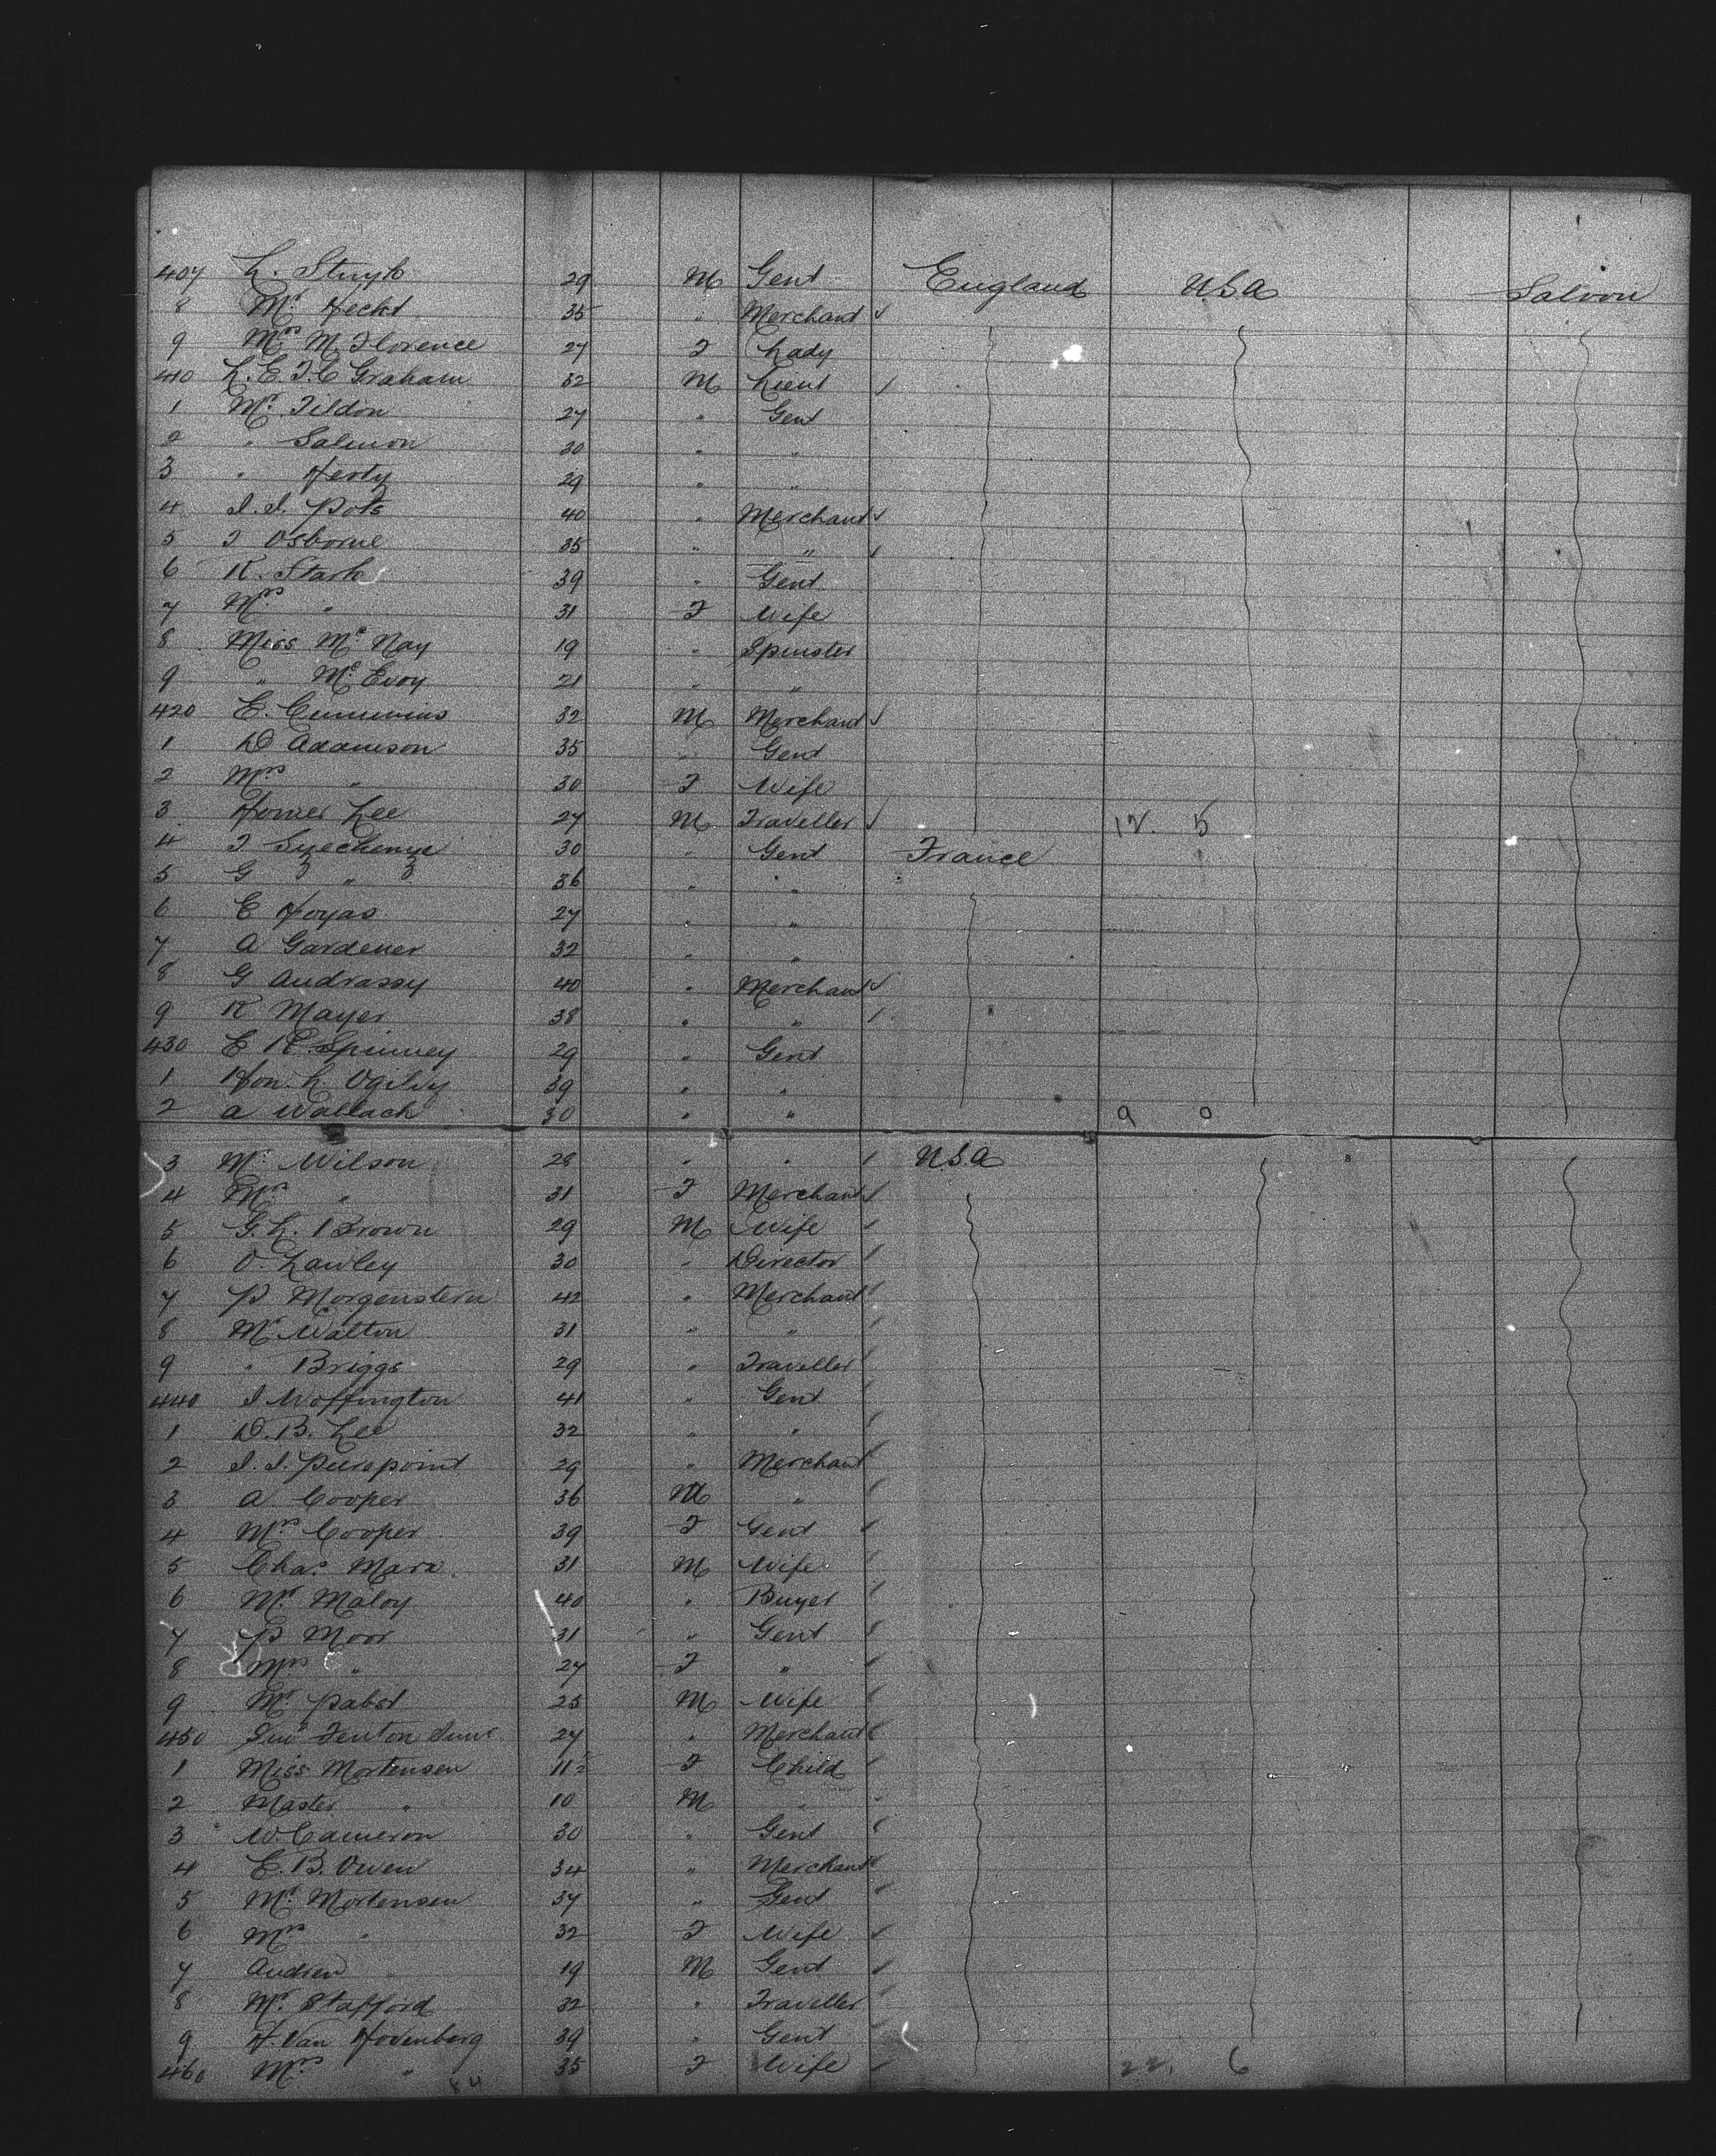 407 L. Stuyk 29 M Gent England U.S.A Saloon
8 Mr Hecht 35 " Merchant
9 Mrs M Florence 27 F Lady
410 L.E.F.C Graham 32 M Lieut
1 Mr Tildon 27 " Gent
2 " Salmon 30 " "
3 " Herty 29 " "
4 I.I. Pots 40 " Merchant
5 F Osborne 35 " "
6 R. Stark 39 " Gent
7 Mrs " 31 F Wife
8 Miss Mc Nay 19 " Spinster
9 " Mc Evoy 21 " "
420 E. Cummins 32 M Merchant
1 D Adamson 35 " Gent
2 Mrs " 30 F Wife
3 Homer Lee 27 M Traveller 12. 5
4 F Szechenyi 30 " Gent France
5 G " 36 " "
6 E Hoyas 27 " "
7 A Gardener 32 " "
8 G Andrassy 40 " Merchant
9 R Mayer 38 " "
430 E R. Spinney 29 " Gent
1 Hon. L. Ogilvy 39 " "
2 A Wallach 30 " " 9 0
3 Mr Wilson 28 " " U.S.A
4 Mrs " 31 F Merchant
5 G.L. Brown 29 M Wife
6 O. Lawley 30 " Director
7 P Morgenstern 42 " Merchant
8 Mr Walton 31 " "
9 " Briggs 29 " Traveller
440 I Woffington 41 " Gent
1 D.B. Lee 32 " "
2 I.I. Pierepoint 29 " Merchant
3 A. Cooper 36 M "
4 Mrs Cooper 39 F Gent
5 Chas Marx 31 M Wife
6 Mr Maloy 40 " Buyer
7 P Moor 31 " Gent
8 Mrs " 27 F "
9 Mr Pabst 25 M Wife
450 Fenton 27 " Merchant
1 Miss Mortensen 11½ F Child
2 Master " 10 M "
3 W. Cameron 30 " Gent
4 E.B. Owen 34 " Merchant
5 Mr Mortensen 37 " Gent
6 Mrs " 32 F Wife
7 Andrew " 19 M Gent
8 Mr Stafford 32 " Traveller
9 H. Van Hovenberg 39 " Gent
460 Mrs " 35 F Wife 22. 6